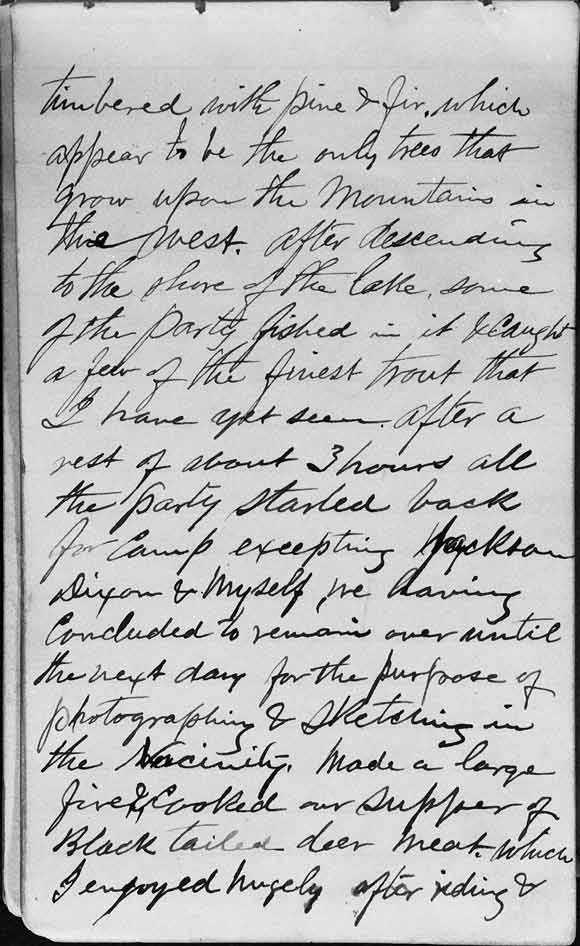 timbered with pine & fir, which
appear to be the only trees that
grow upon the Mountains in
this West. after descending
to the shore of the lake, some
of the party fished in it & caught
a few of the finest trout that
I have yet seen. after a
rest of about 3 hours all
the party started back
for Camp excepting Jackson
Dixon & Myself, we having
Concluded to remain over until
the next day for the purpose of
photographing & Sketching in
the Vacinity. Made a large
fire & Cooked our Supper of
Black tailed deer meat. which
I engoyed hugely after riding &